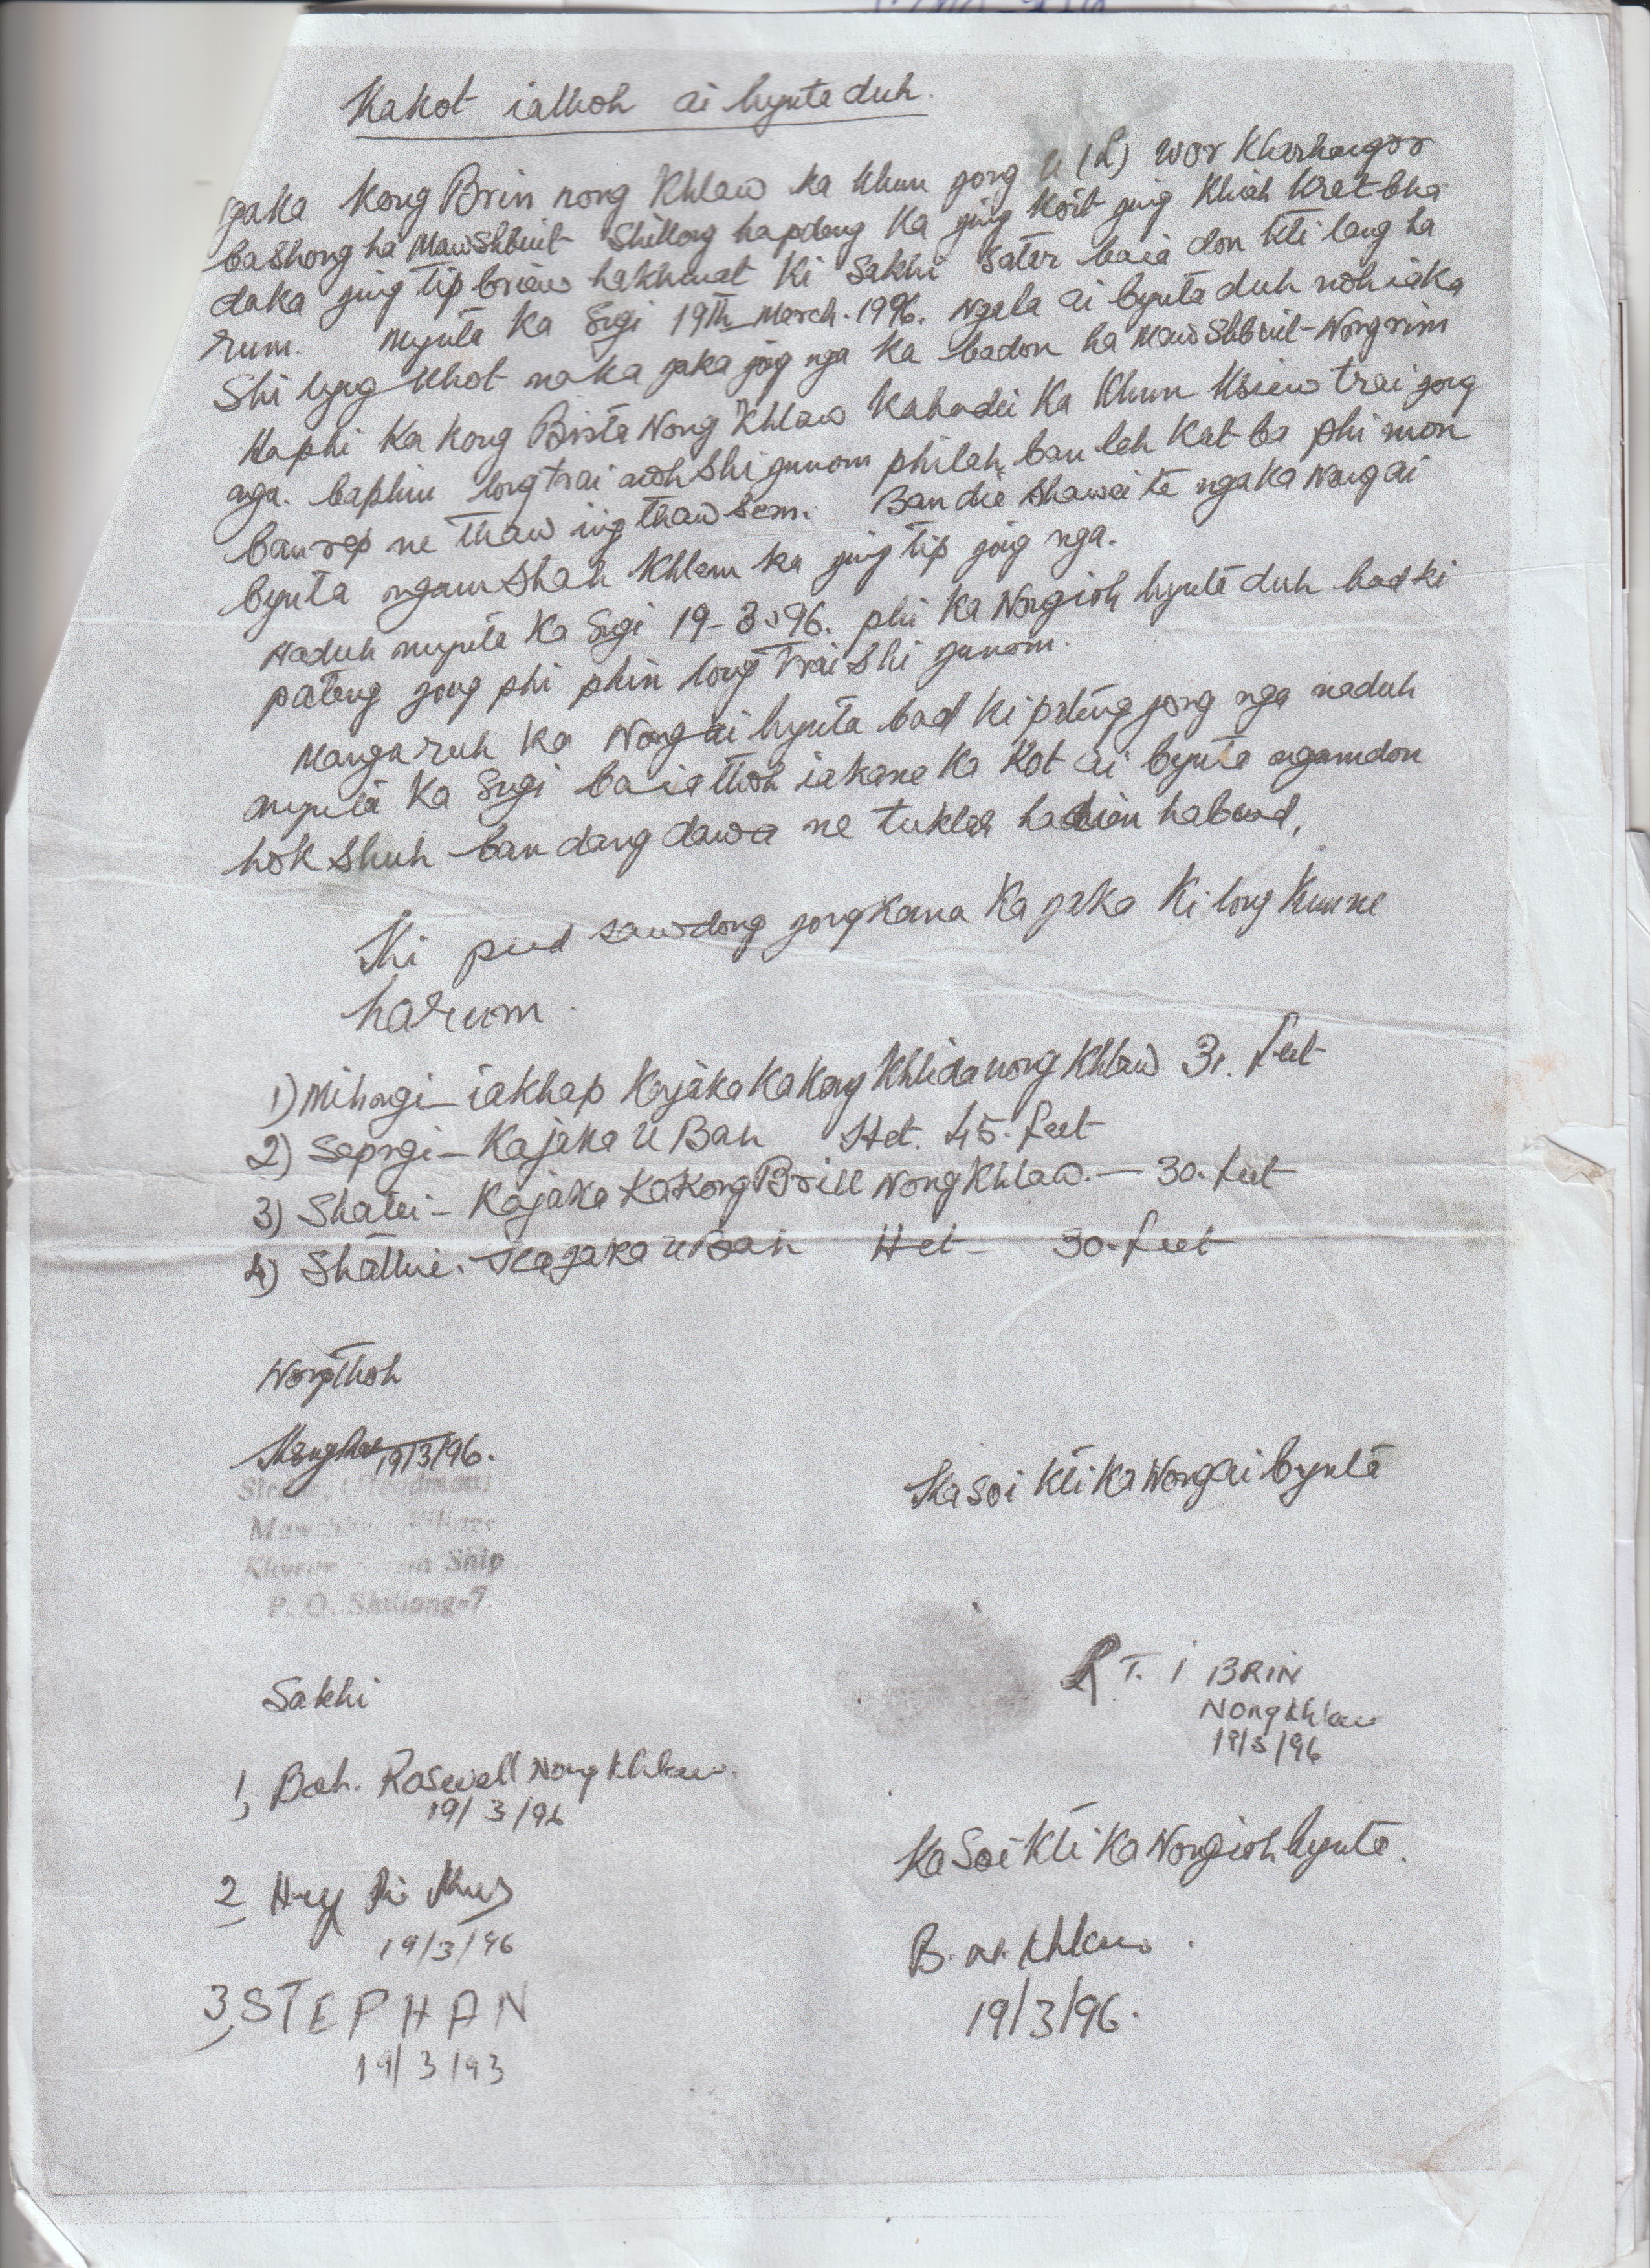 Kakot iathoh ai bynta duh.
Ngaka Kong Brin nong Khlaw ka khun jong U (L) Wor Kharhaugor
bashong ha Mawshbuit Shillong hapdeng Ka jing koit jing Khiah kret bha
daka jing tip briew hakhmat Ki Sakhi Sater baia don kti lang ha
rum. Mynta ka Sngi 19th March. 1996. Ngala ai bynta duh noh iaka
Shi lyng khot naka jaka jong nga ka badon ha Mawshbuit-Nongrim
Haphi Ka Kong Brista Nong Khlaw Kahadei Ka Khun Ksiew trai jong
nga. baphin long trai noh shi junom philah ban leh Kat ba phi mon
ban rep ne thaw iing thaw sem. Ban die shawei te ngaka Nong ai
bynta ngam shah khlem ka jing tip jong nga.
Naduh mynta Ka Sngi 19-3-96. phi Ka Nongioh bynta duh bad ki
pateng jong phi phin long Trai shi junom.
Manga ruh Ka Nong ai bynta bad Ki pateng jong nga naduh
mynta Ka Sngi baia thoh iakane Ka Kot ai bynta ngamdon
hok shuh ban dang dawa ne tuklar hadien habud.
Ki pud sawdong jong kana Ka jaka Ki long kumne
harum.
1) Mihngi - iakhap Kajaka Ka Kong Khlida nong Khlaw 31. feet
2) Sepngi - Kajaka U Bah Het. 45. feet
3) Shatei - Kajaka Ka Kong Brill Nong Khlaw. - 30. feet
4) Shathie. Kajaka U Bah Het - 30. feet
Nongthoh
19/3/96.
Mawshbuit Village
Ship
P. O. Shillong-7.
Ka soi kti Ka Nongai bynta
R T. i BRIN
Nongkhlaw
19/3/96
Sakhi
1, Bah. Roswell Nong Khlaw.
19/3/96
Ka Soi Kti Ka Nongioh bynta.
2
19/3/96
B. N. Khlaw.
19/3/96.
3, STEPHAN
19/3/93